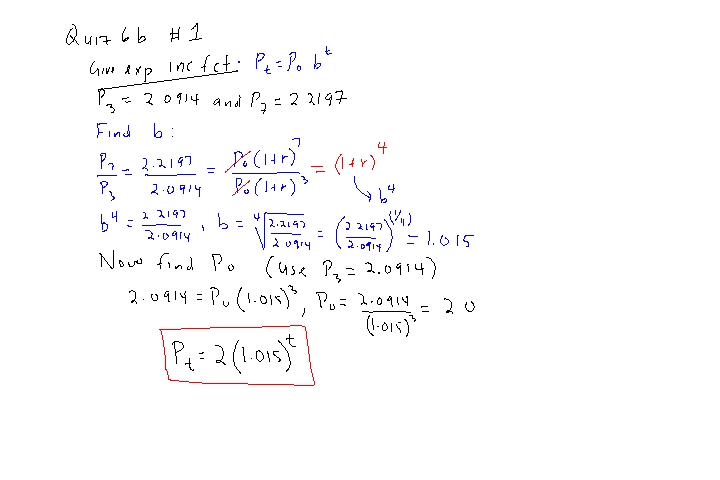 Quiz 6b #1
Give exp inc fct: P_t = P_0 b^t
P_3 = 2.0914 and P_7 = 2.2197
Find b:
P_7/P_3 = 2.2197/2.0914 = P_0(1+r)^7/P_0(1+r)^3 = (1+r)^4
b^4
b^4 = 2.2197/2.0914, b = ⁴√(2.2197/2.0914) = (2.2197/2.0914)^(1/4) = 1.015
Now find P_0 (use P_3 = 2.0914)
2.0914 = P_0(1.015)^3, P_0 = 2.0914/(1.015)^3 = 2.0
P_t = 2(1.015)^t